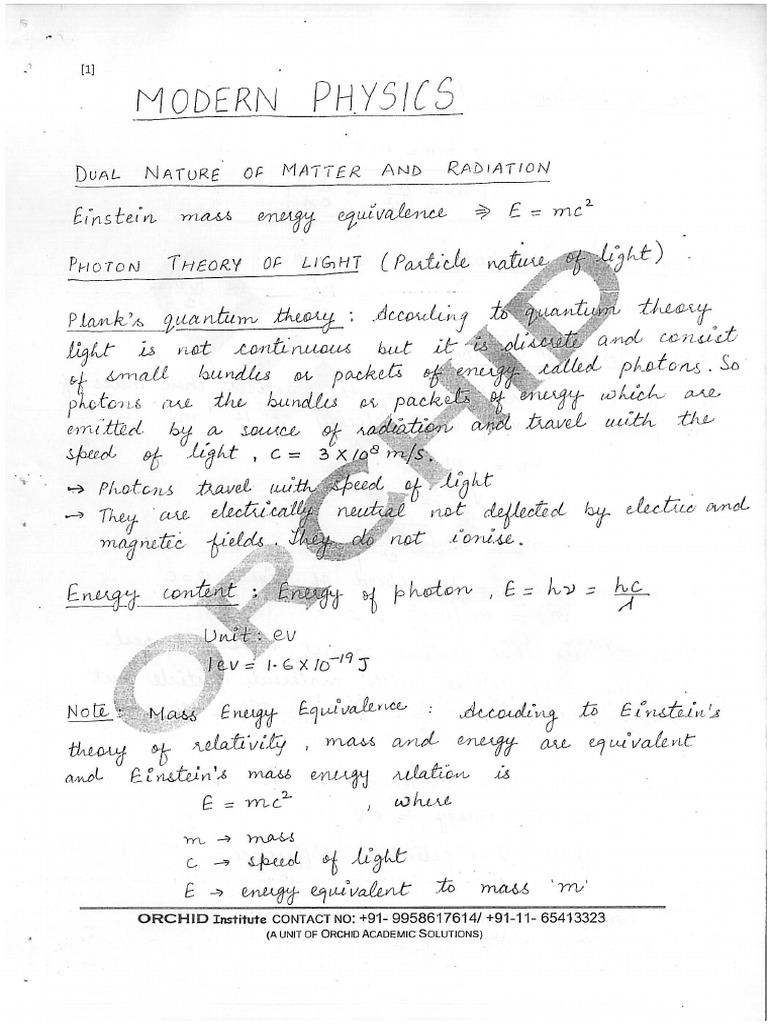 [1]
MODERN PHYSICS
DUAL NATURE OF MATTER AND RADIATION
Einstein mass energy equivalence ⇒ E = mc²
PHOTON THEORY OF LIGHT (Particle nature of light)
Plank's quantum theory : According to quantum theory
light is not continuous but it is discrete and consist
of small bundles or packets of energy called photons. So
photons are the bundles or packets of energy which are
emitted by a source of radiation and travel with the
speed of light , c = 3 × 10⁸ m/s.
→ Photons travel with speed of light
→ They are electrically neutral not deflected by electric and
magnetic fields. They do not ionise.
Energy content : Energy of photon , E = hν = hc/λ
Unit : ev
1ev = 1.6 × 10⁻¹⁹ J
Note : Mass Energy Equivalence : According to Einstein's
theory of relativity , mass and energy are equivalent
and Einstein's mass energy relation is
E = mc² , where
m → mass
c → speed of light
E → energy equivalent to mass 'm'
ORCHID
ORCHID Institute CONTACT NO: +91- 9958617614/ +91-11- 65413323
(A UNIT OF ORCHID ACADEMIC SOLUTIONS)